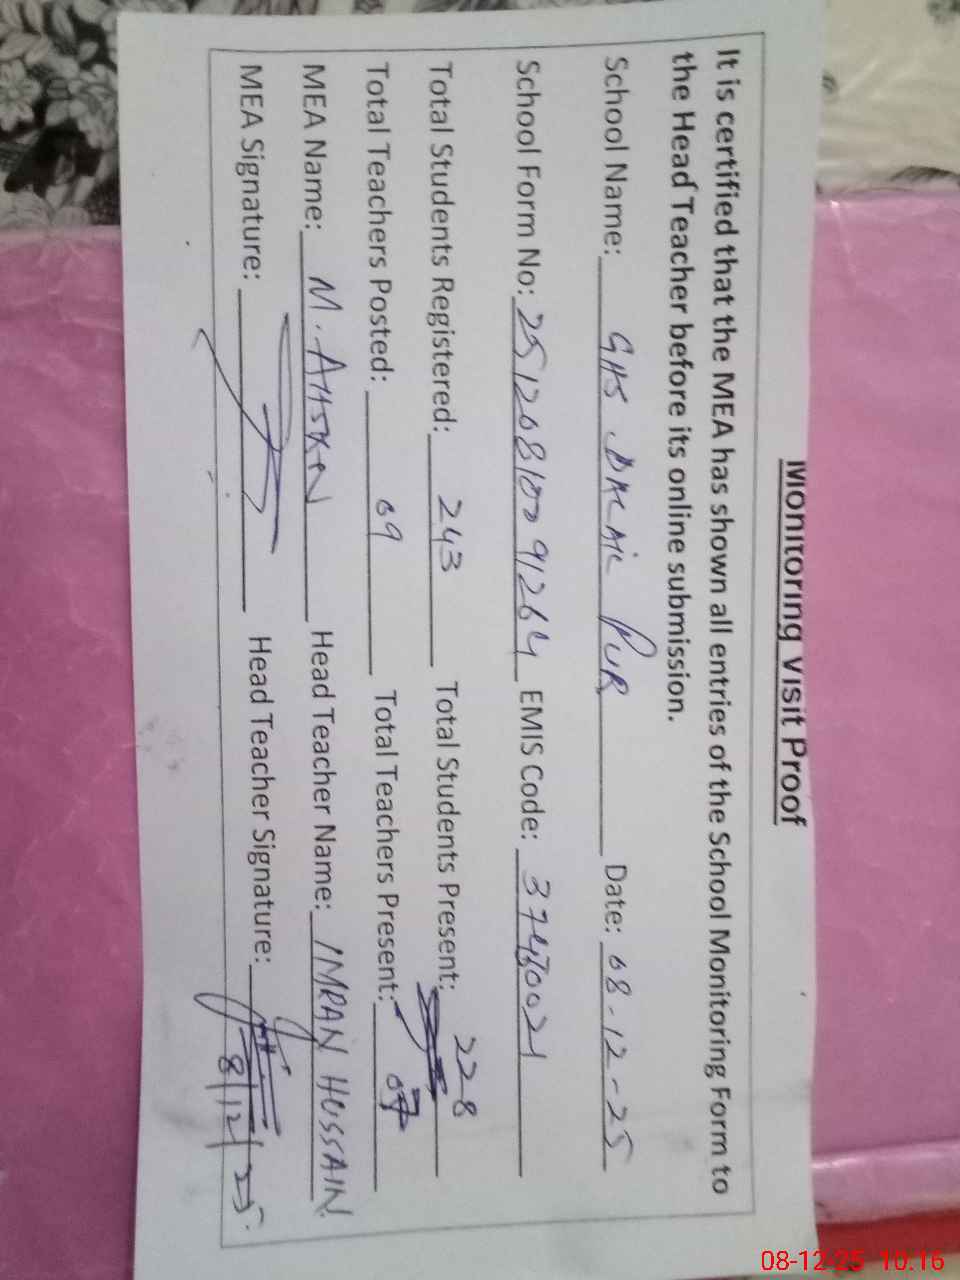 Monitoring Visit Proof
It is certified that the MEA has shown all entries of the School Monitoring Form to
the Head Teacher before its online submission.
School Name: GHS DALAIL PUR Date: 08-12-25
School Form No: 251208100 91264 EMIS Code:
Total Students Registered: 243 Total Students Present: 228
Total Teachers Posted: 09 Total Teachers Present: 07
MEA Name: M. AHSAN Head Teacher Name: IMRAN HUSSAIN
MEA Signature: Head Teacher Signature: 8/12/25
08-12-25 10:16